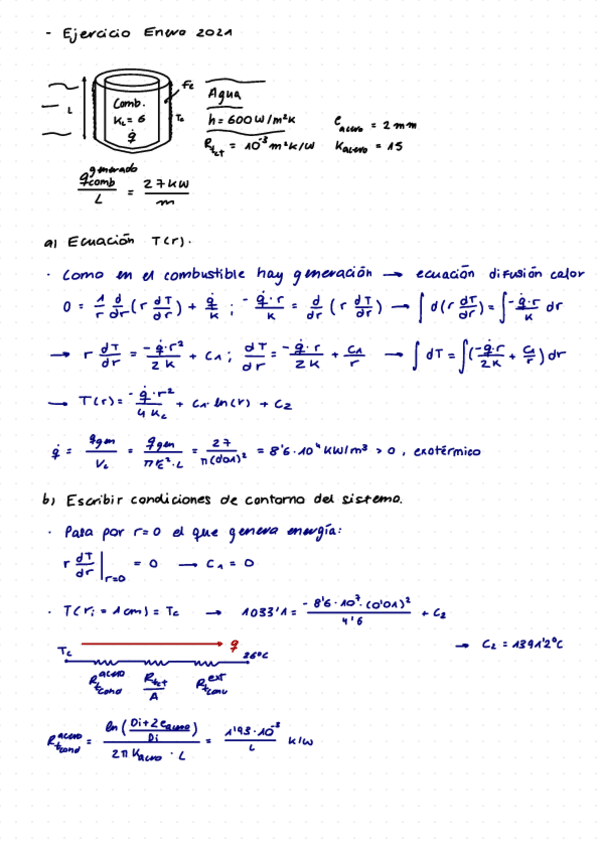 - Ejercicio Enero 2021
Fe
Agua
L
Comb.
K_c = 6
q̇
T_c
h = 600 W/m²K
R_t,ct = 10⁻³ m²K/W
e_acero = 2 mm
K_acero = 15
q_comb^generado / L = 27 kW / m
a) Ecuación T(r).
· Como en el combustible hay generación → ecuación difusión calor
0 = 1/r d/dr (r dT/dr) + q̇/k ; -q̇·r/k = d/dr (r dT/dr) → ∫ d(r dT/dr) = ∫ -q̇·r/k dr
→ r dT/dr = -q̇·r²/2k + C₁ ; dT/dr = -q̇·r/2k + C₁/r → ∫ dT = ∫(-q̇·r/2k + C₁/r) dr
→ T(r) = -q̇·r²/4k_c + C₁·ln(r) + C₂
q̇ = q_gen/V_c = q_gen/πr_c²·L = 27/π(0'01)² = 8'6·10⁴ kW/m³ > 0, exotérmico
b) Escribir condiciones de contorno del sistema.
· Pasa por r=0 el que genera energía:
r dT/dr |_r=0 = 0 → C₁ = 0
· T(r_i = 1cm) = T_c → 1033'1 = -8'6·10⁷·(0'01)²/4'6 + C₂
→ C₂ = 1391'2°C
T_c
q
26°C
R_t,cond^acero
R_t,ct/A
R_t,conv^ext
R_t,cond^acero = ln(Di+2e_acero/Di)/2π K_acero·L = 1'93·10⁻³/L K/W